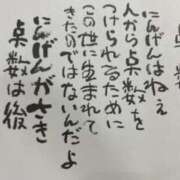 にんげんはねぇ
人から点数を
つけられるために
この世に生まれて
きたのではないんだよ
にんげんがさき
点数は後